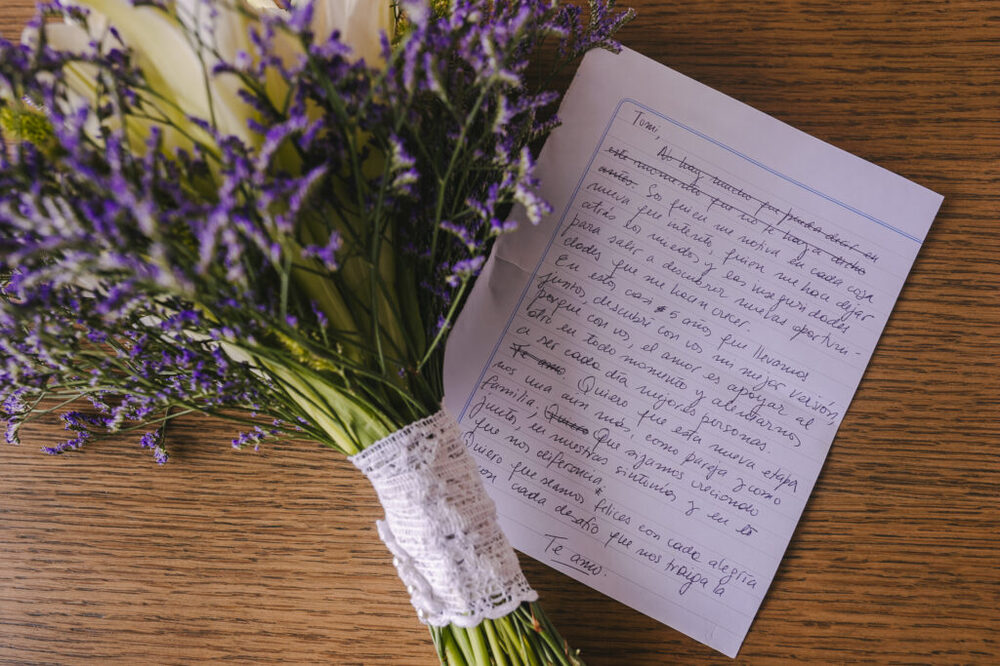 Tomi,
No hay mucho que pueda decir en
este momento que no te haya dicho
antes. Sos quien me motiva en cada cosa
nueva que intento, quien me hace dejar
atrás los miedos y las inseguridades
para salir a descubrir nuevas oportuni-
dades que me hacen crecer.
En estos casi 5 años que llevamos
juntos descubrí con vos mi mejor versión,
porque con vos, el amor es apoyar al
otro en todo momento y alentarnos
a ser cada día mejores personas.
Te amo. Quiero que esta nueva etapa
nos una aun más, como pareja y como
familia; Quiero Que sigamos creciendo
juntos, en nuestras sintonías y en lo
que nos diferencia.
Quiero que seamos felices con cada alegría
con cada desafío que nos traiga la
Te amo.